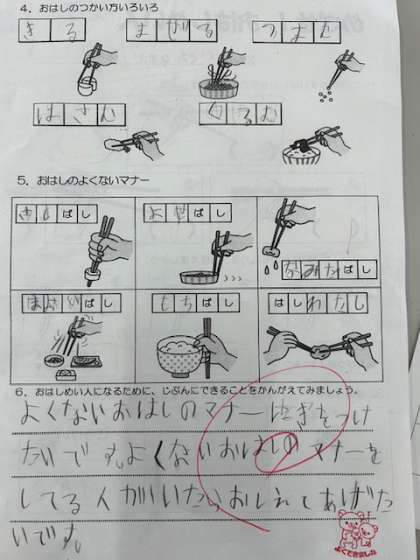 4. おはしのつかい方いろいろ
きる まぜる つまむ
はさむ くるむ
5. おはしのよくないマナー
さしばし よせばし
なみだばし
まよいばし もちばし はしわたし
6. おはしめい人になるために、じぶんにできることをかんがえてみましょう。
よくないおはしのマナー きをつけ
たいです。よくないおはしのマナーを
してる人がいたらおしえてあげた
いです。
よくできました